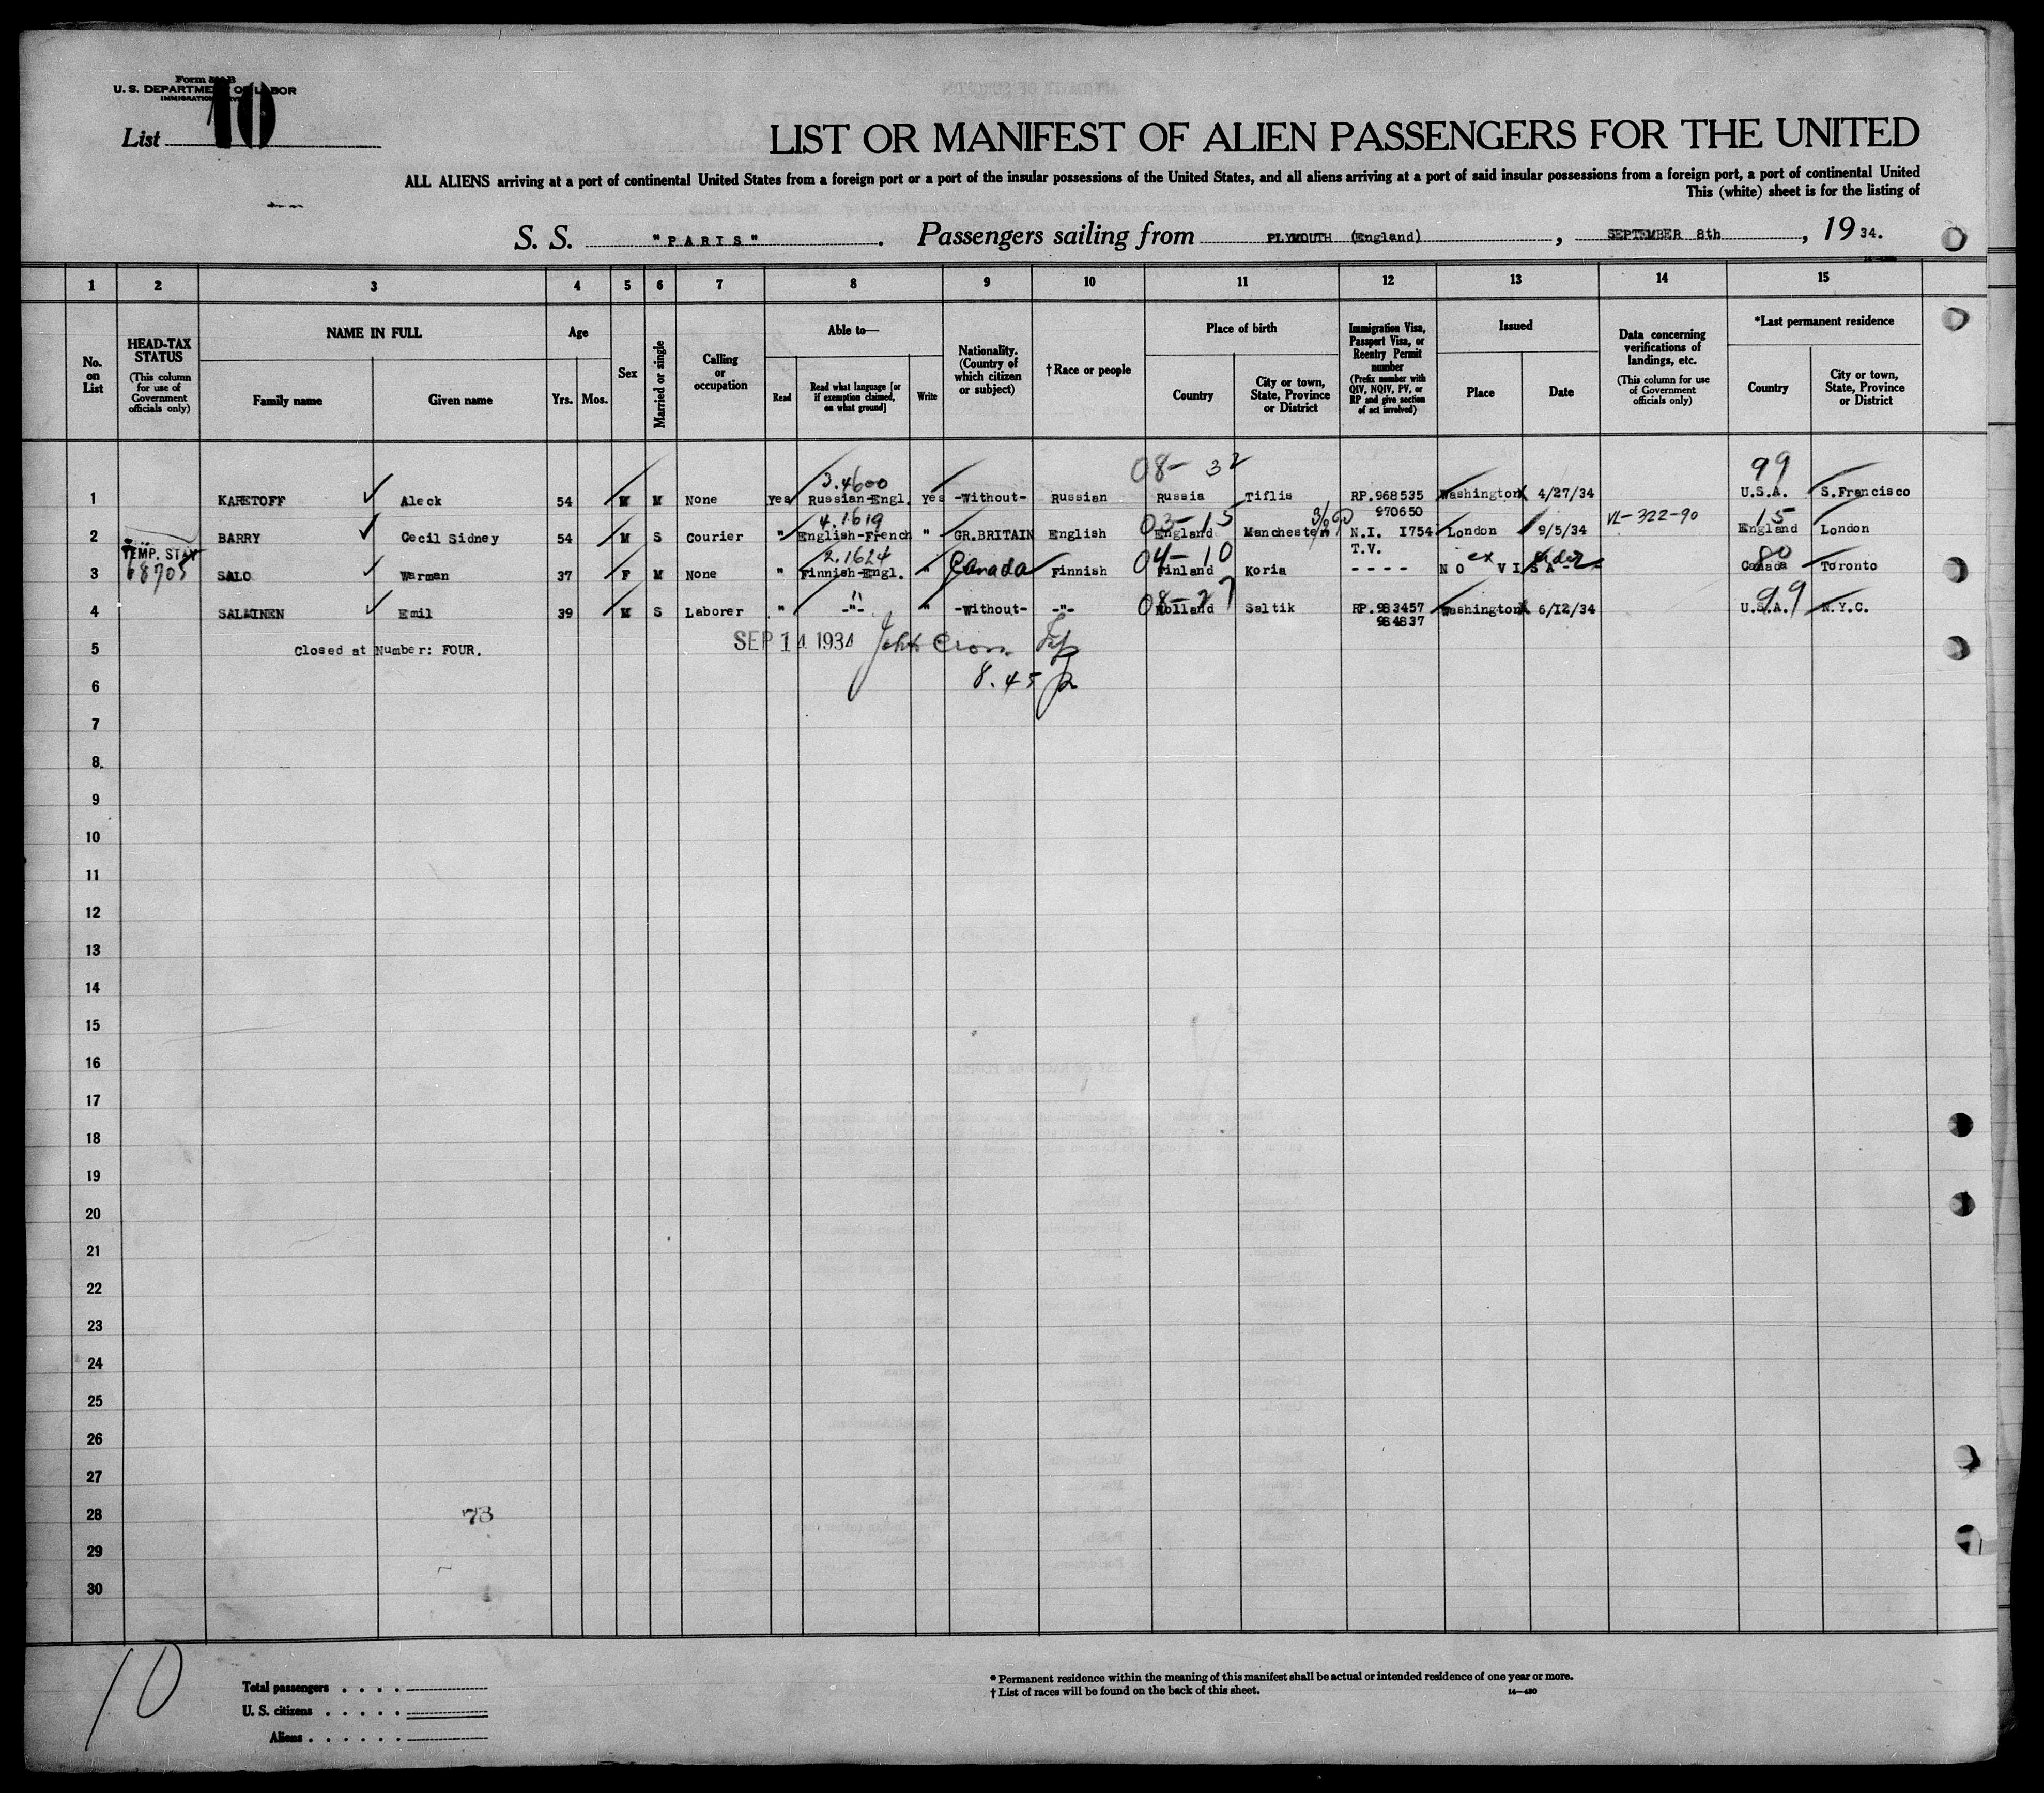 Form 500 B
U. S. DEPARTMENT OF LABOR
IMMIGRATION SERVICE
List 10
LIST OR MANIFEST OF ALIEN PASSENGERS FOR THE UNITED
ALL ALIENS arriving at a port of continental United States from a foreign port or a port of the insular possessions of the United States, and all aliens arriving at a port of said insular possessions from a foreign port, a port of continental United
This (white) sheet is for the listing of
S. S. "PARIS". Passengers sailing from PLYMOUTH (England), SEPTEMBER 8th, 1934.
1 2 3 4 5 6 7 8 9 10 11 12 13 14 15
No. on List
HEAD-TAX STATUS (This column for use of Government officials only)
NAME IN FULL
Family name
Given name
Age
Yrs. Mos.
Sex
Married or single
Calling or occupation
Able to—
Read
Read what language [or if exemption claimed, on what ground]
Write
Nationality. (Country of which citizen or subject)
†Race or people
Place of birth
Country
City or town, State, Province or District
Immigration Visa, Passport Visa, or Reentry Permit number (Prefix number with QIV, NQIV, PV, or RP and give section of act involved)
Issued
Place
Date
Data concerning verifications of landings, etc. (This column for use of Government officials only)
*Last permanent residence
Country
City or town, State, Province or District
08- 32 99
3.4600
1 KARETOFF Aleck 54 M M None Yes Russian-Engl. Yes -Without- Russian Russia Tiflis RP.968535 Washington 4/27/34 U.S.A. S.Francisco
970650
4.1619 03-15 VL-322-90 15
2 BARRY Cecil Sidney 54 M S Courier " English-French " GR.BRITAIN English England Manchester N.I. 1754 London 9/5/34 England London
TEMP. STAY 2.1624 04-10 T.V. 80
68705
3 SALO Warman 37 F M None " Finnish-Engl. " Canada Finnish Finland Koria ---- NO VISA- Canada Toronto
" 08-27 99
4 SALMINEN Emil 39 M S Laborer " -"- " -Without- -"- Holland Saltik RP.983457 Washington 6/12/34 U.S.A. N.Y.C.
984837
5 Closed at Number: FOUR. SEP 14 1934 John Cross
6 8.45 p
7
8
9
10
11
12
13
14
15
16
17
18
19
20
21
22
23
24
25
26
27
28 73
29
30
10
Total passengers
U. S. citizens
Aliens
* Permanent residence within the meaning of this manifest shall be actual or intended residence of one year or more.
† List of races will be found on the back of this sheet.
14—430